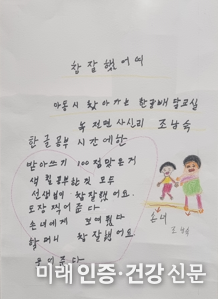 참 잘했어여
안동시 찾아가는 한글배달교실
녹전면 사신리 조남숙
한글공부 시간에 한
받아쓰기 100점 맞은거
색칠공부한 것 모두
선생님이 참잘했어요.
도장 찍어준다
손녀에게 보여줬다
할머니 참잘했어요
손녀
미래 인증·건강 신문